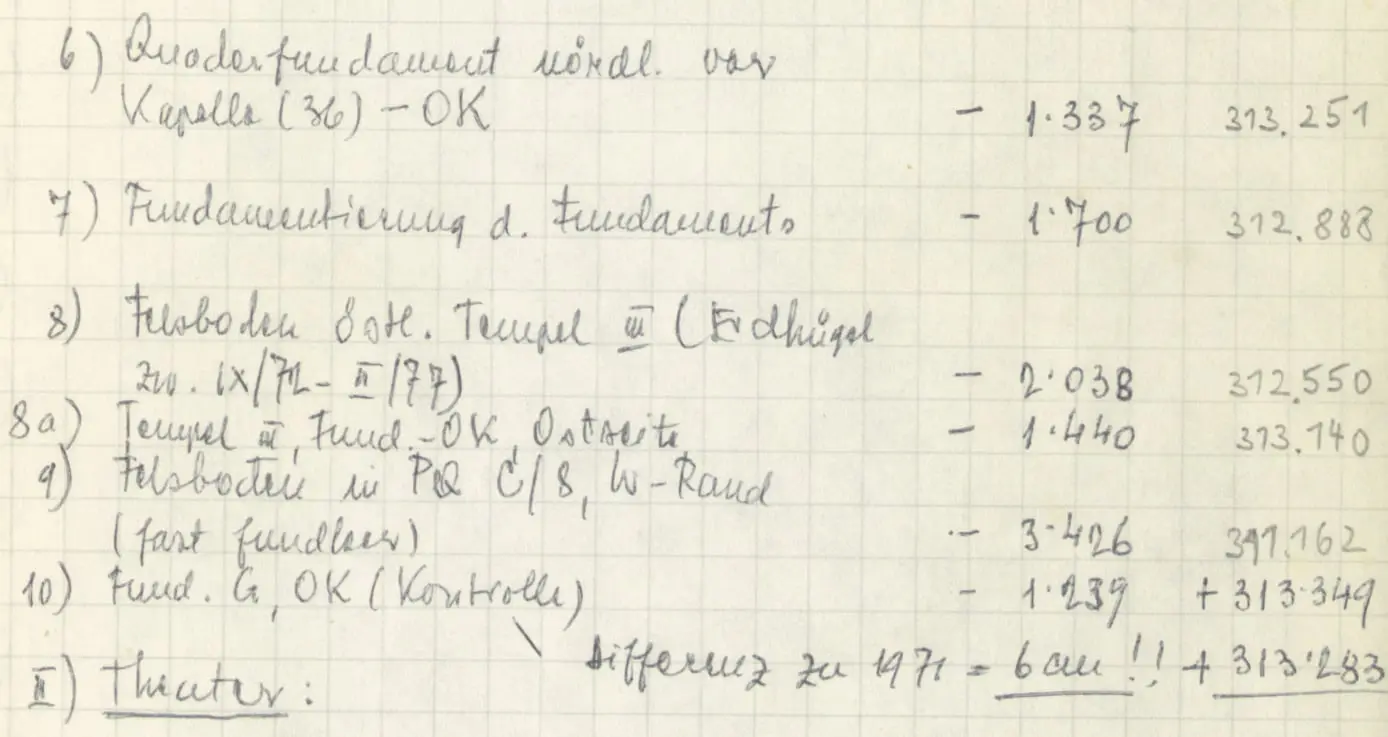 6) Quaderfundament nördl. vor
Kapelle (36) – OK – 1·337 313.251
7) Fundamentierung d. Fundaments – 1·700 312.888
8) Felsboden östl. Tempel III (Erdhügel
zw. IX/72 – II/77) – 2·038 312.550
8a) Tempel III, Fund.-OK, Ostseite – 1·440 313.140
9) Felsboden in PQ C/8, W-Rand
(fast fundleer) – 3·426 311.162
10) Fund. G, OK (Kontrolle) – 1·239 + 313·349
Differenz zu 1971 = 6 cm !! + 313·283
II) Theater: